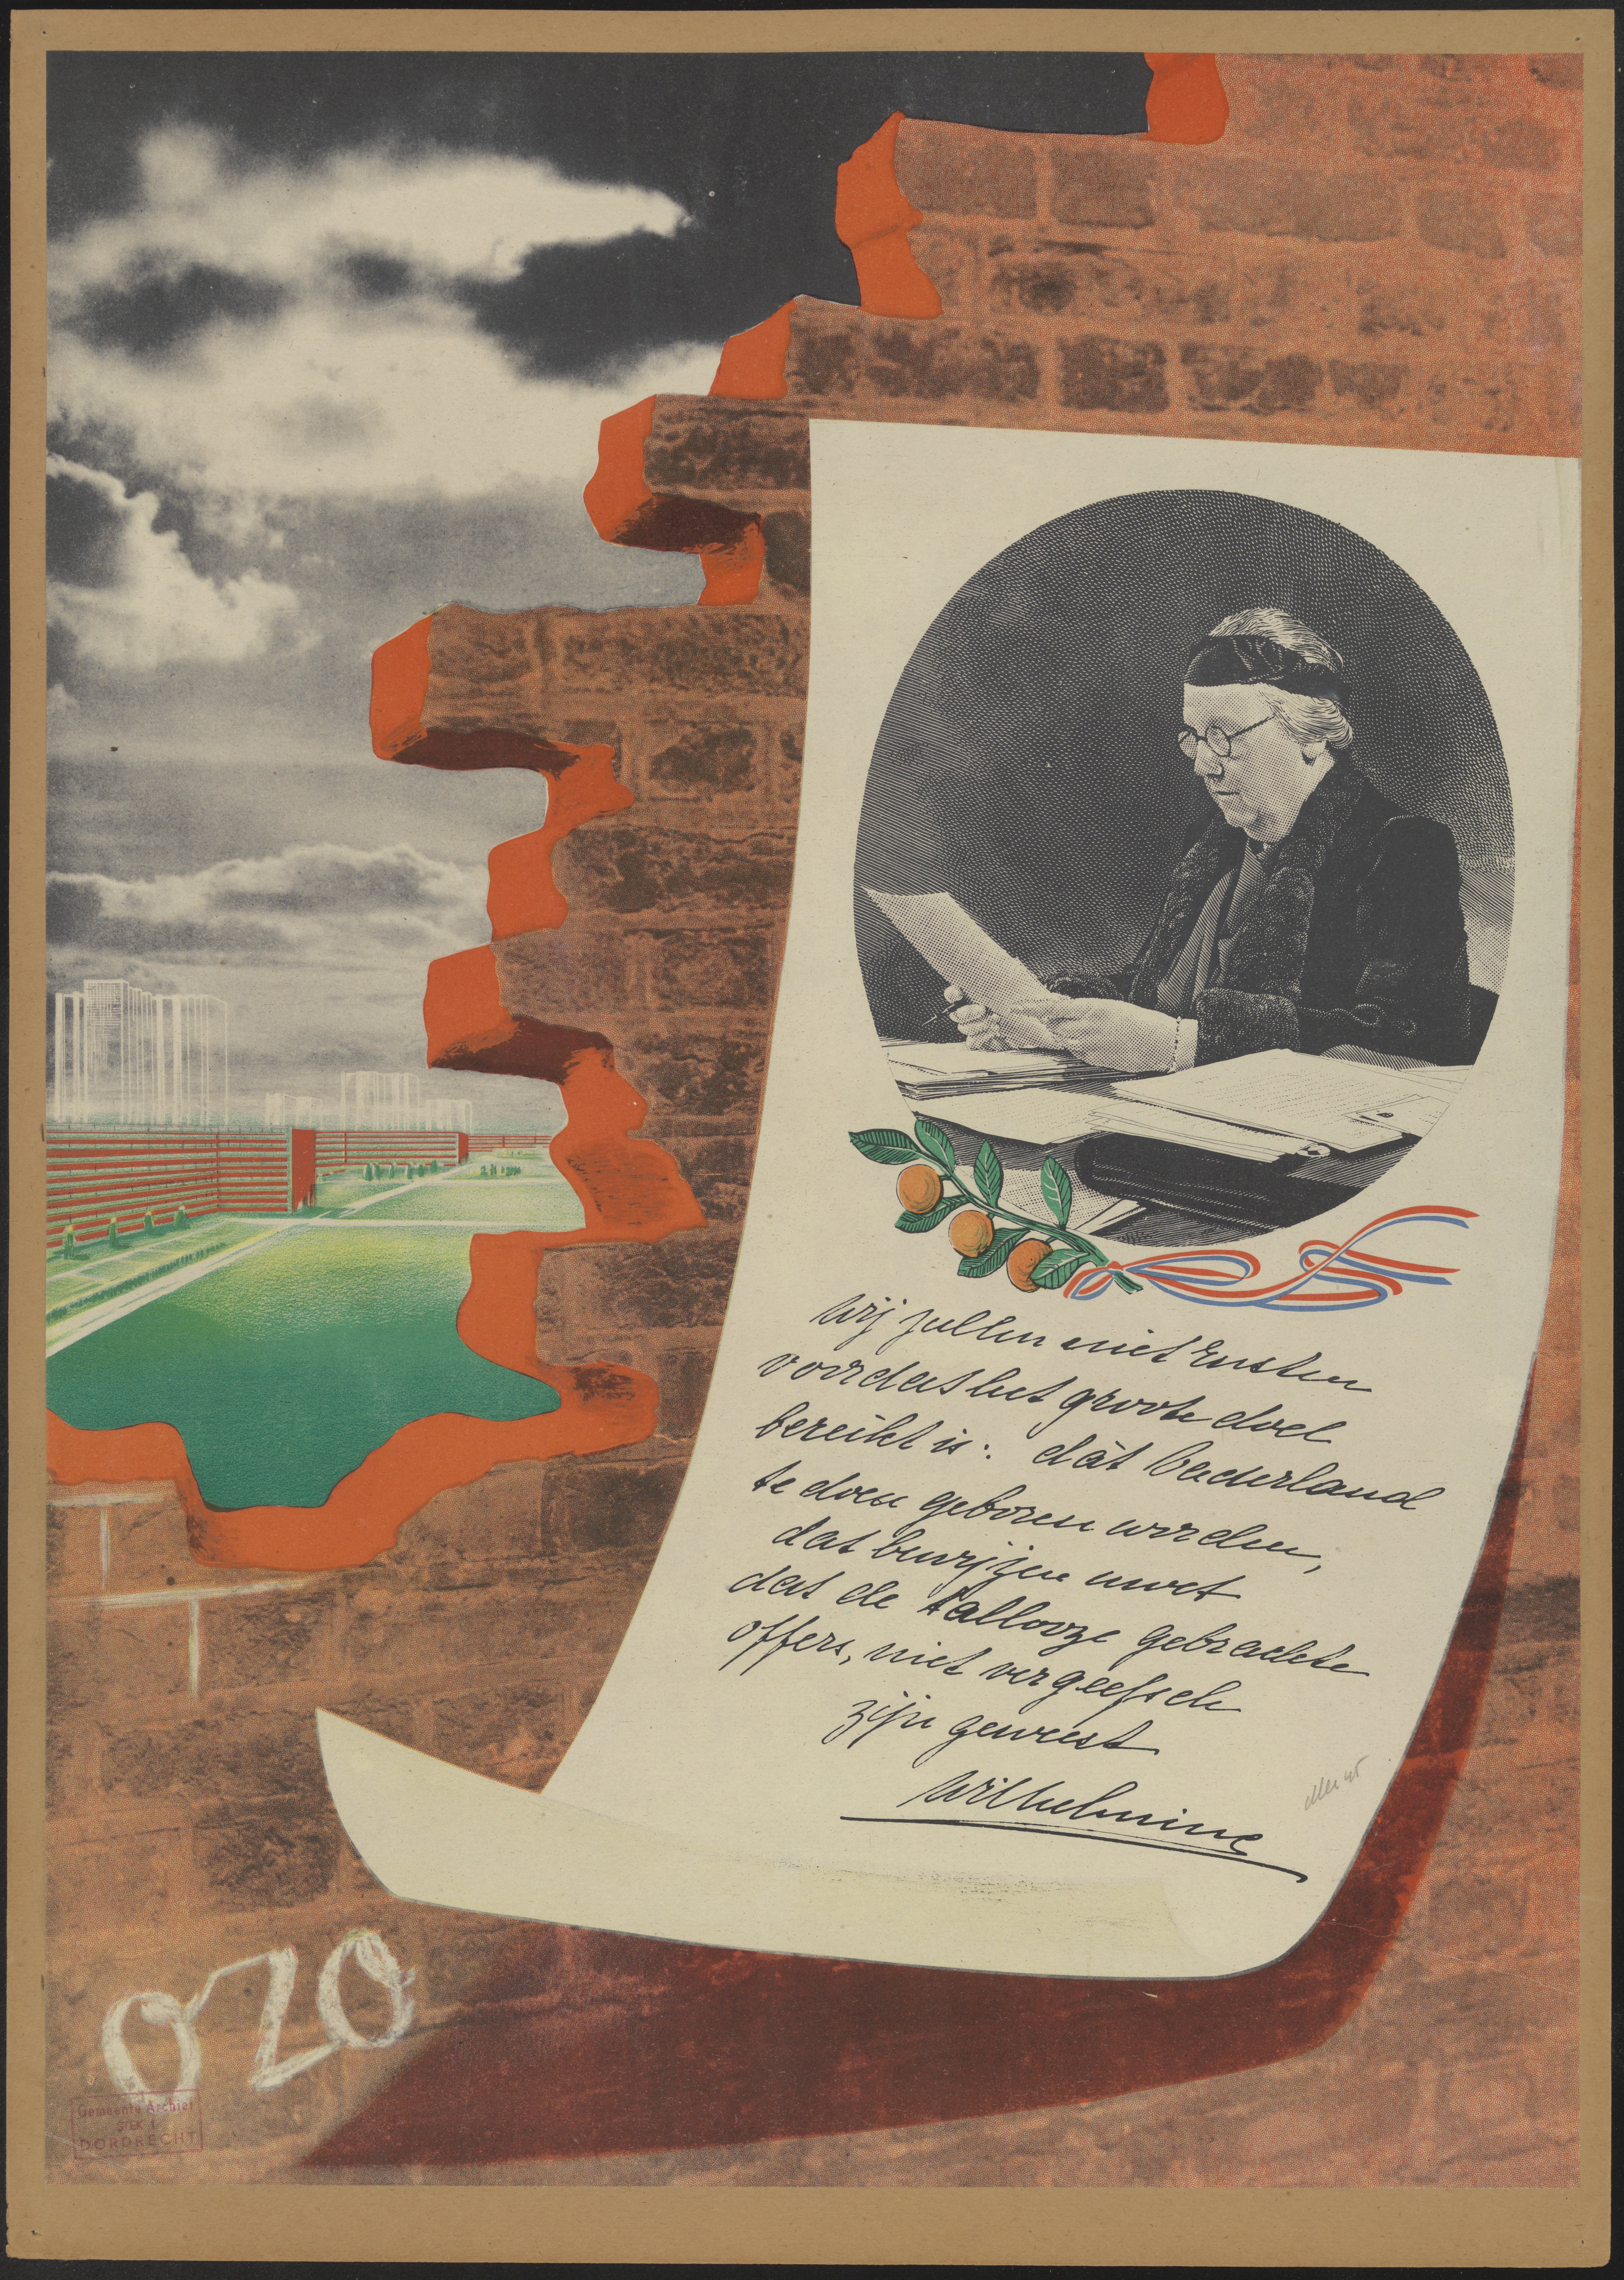 Wij zullen niet rusten
voordat het groote doel
bereikt is: dát Nederland
te doen geboren worden,
dat bewijzen moet
dat de tallooze gebrachte
offers, niet vergeefsch
zijn geweest
Wilhelmina
OZO
Gemeente Archief
DORDRECHT